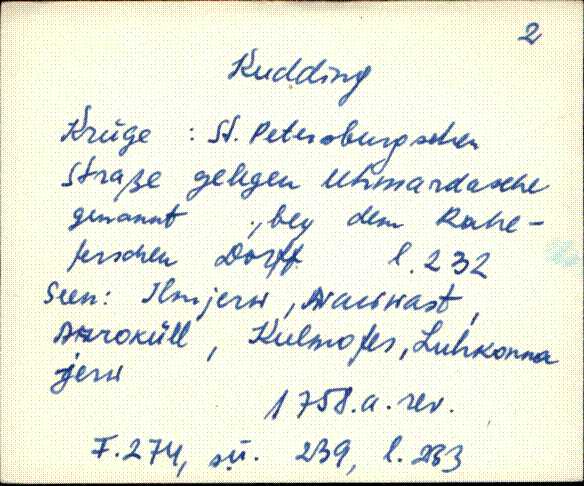 2
Kudding
Krüge : St. Petersburgschen
Straße gelegen Uhmardasche
genannt „bey dem Rahe-
ferschen Dorff l. 232
Seen: Ilmjerw, Nauwast,
Arroküll, Kulmofer, Luhkonna
jerw
1758.a. rev.
F.274, sü. 239, l. 233